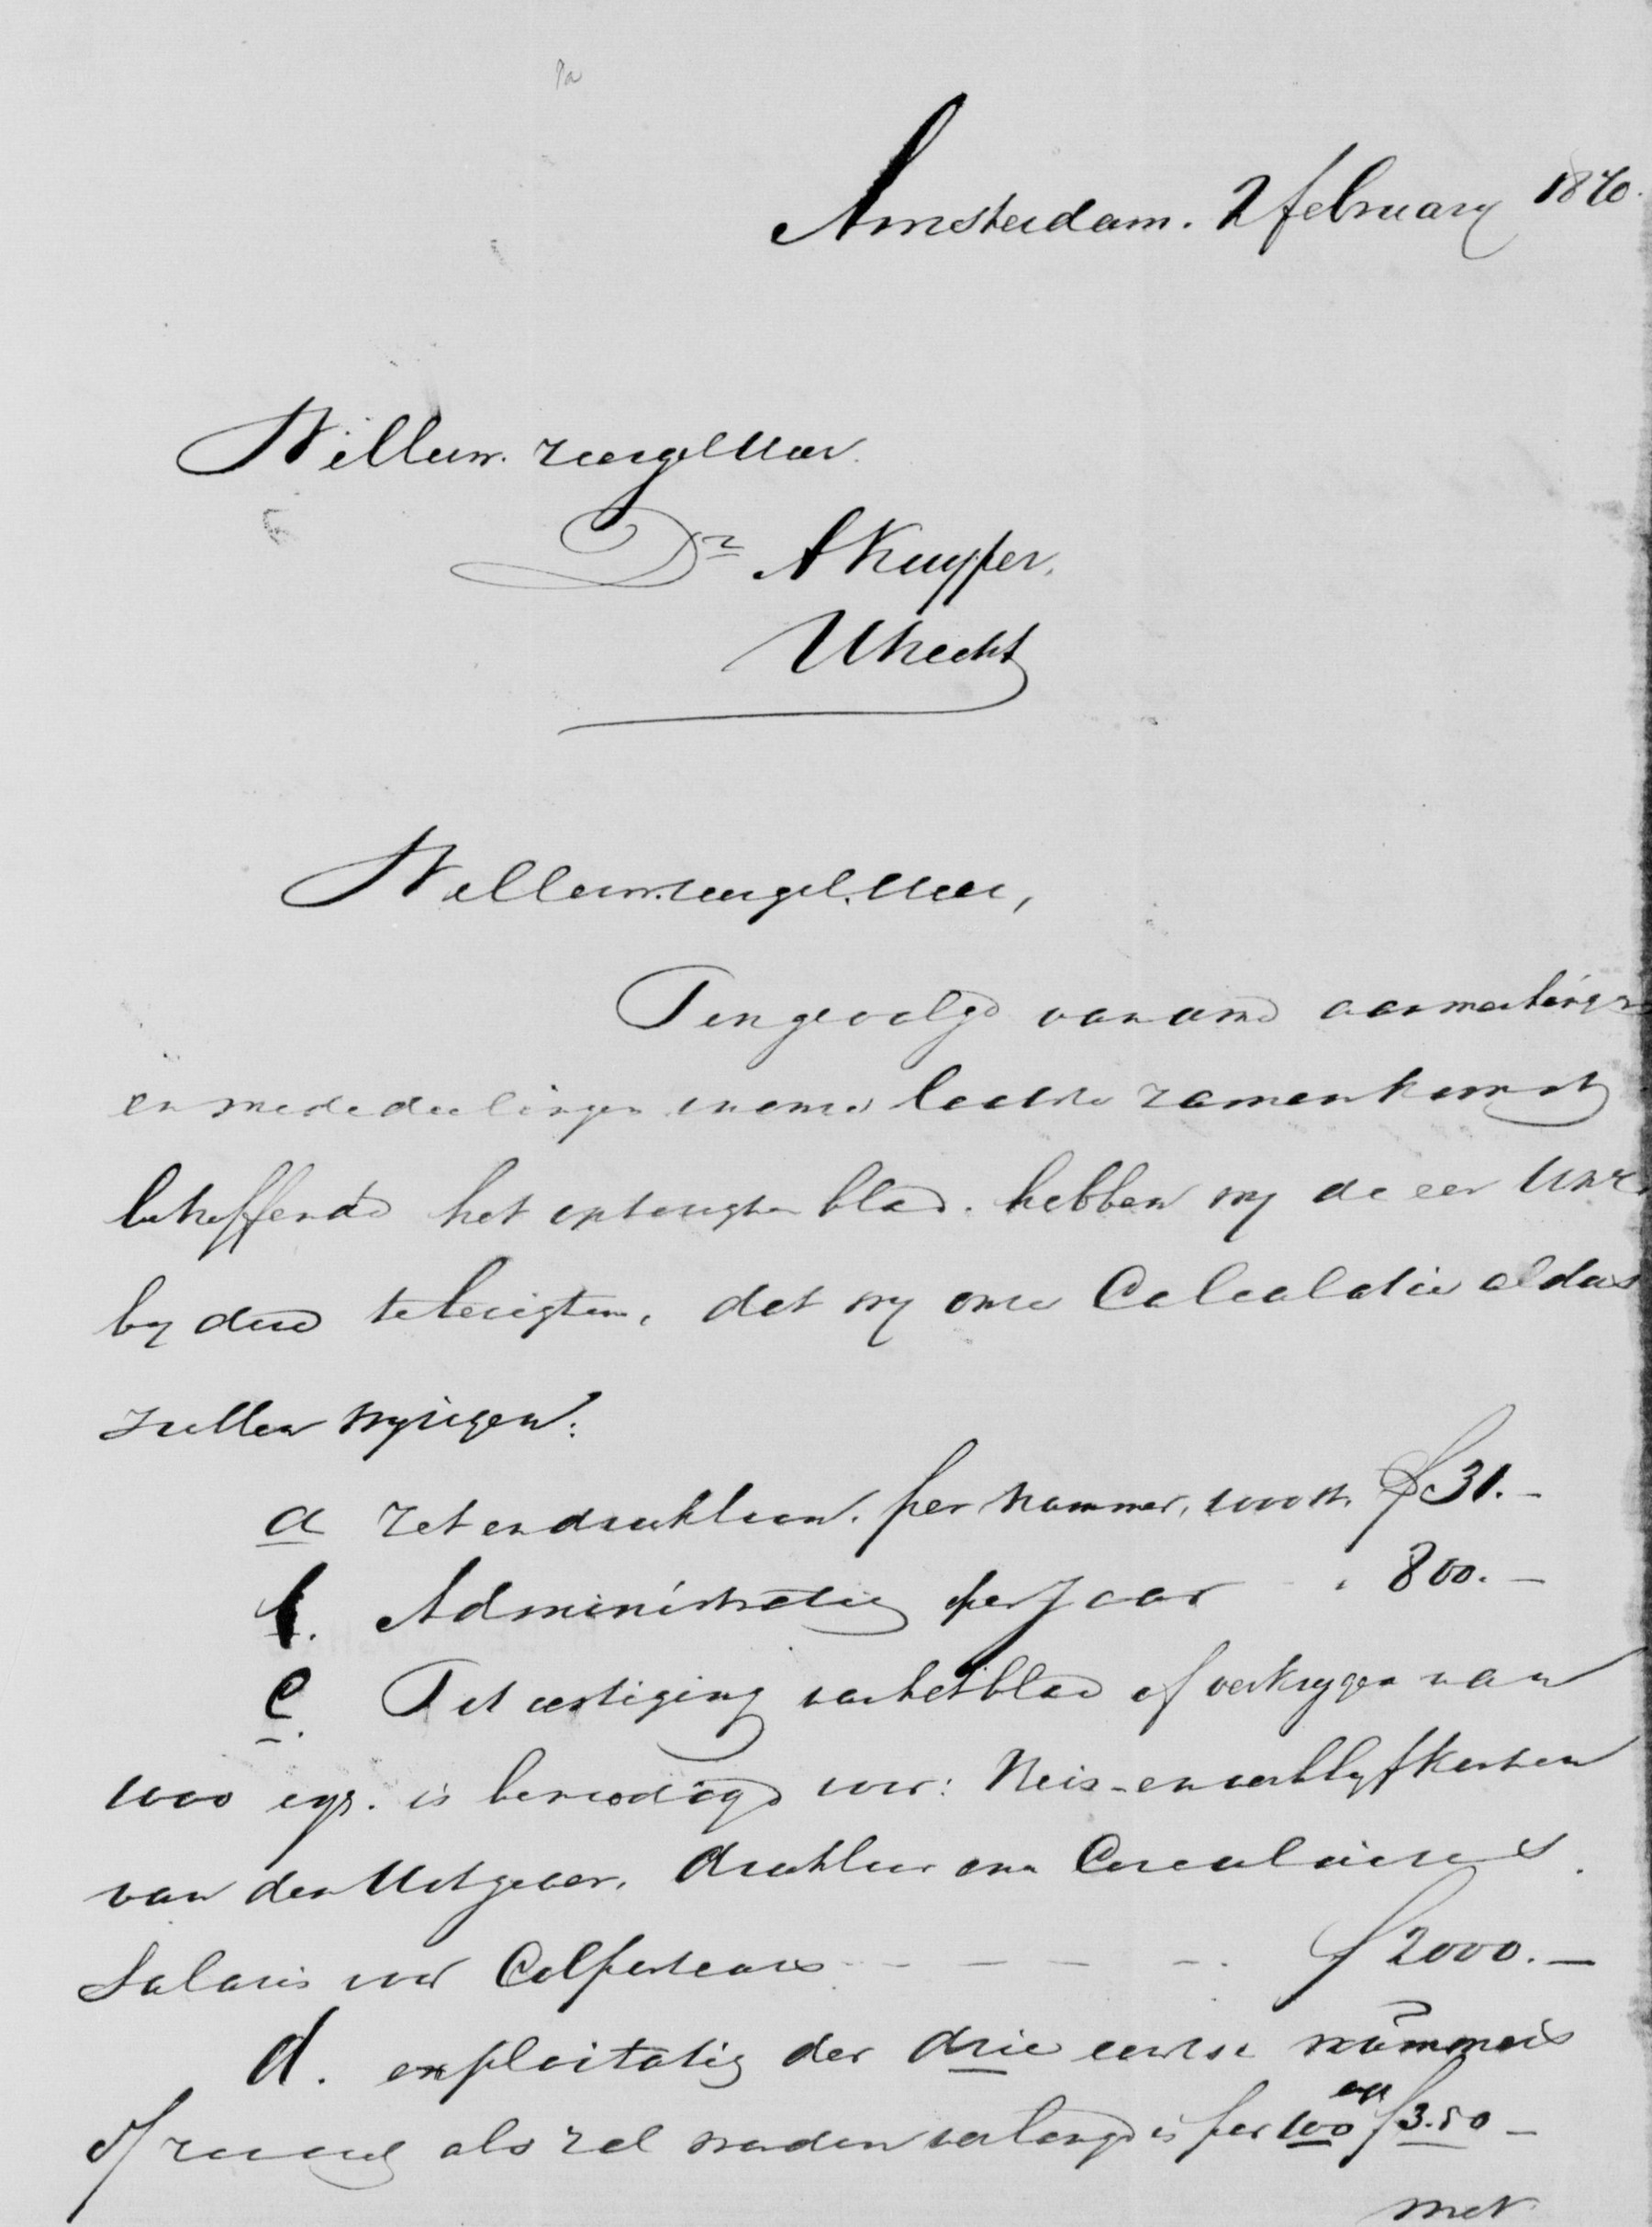 Amsterdam. 2 february 1870.
Welleerw. zeergel Heer
Dr A Kuyper.
Utrecht
Welleerw. zeergel. Heer,
Tengevolge van onze aanmerkingen
en mededeelingen in onze laatste zamenkomst
betreffende het opterigten blad. hebben wy de eer UwE
by deze teberigten, dat wy onze Calculatie aldus
zullen wyzigen:
a Zet en drukloon. per nummer, 1000 ex. f 31.-
b. Administratie per Jaar - " 800.-
c. Tot vestiging van het blad of verkrygen van
1000 exp. is benoodigd voor: Reis- en verblyfkosten
van den Uitgever. drukloon van Circulaires.
Salaris voor Colporteurs - - - - f 2000.-
d. exploitatie der drie eerste nummers
of zooveel als zal worden verlangd is per 100 exp f 3.50 -
met